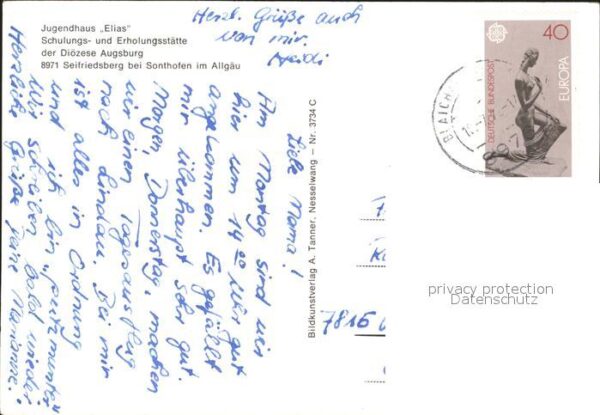 Jugendhaus „Elias"
Schulungs- und Erholungsstätte
der Diözese Augsburg
8971 Seifriedsberg bei Sonthofen im Allgäu
Herzl. Grüße auch
von mir.
Heidi
Liebe Mama!
Am Montag sind wir
hier um 14⁰⁰ Uhr gut
angekommen. Es gefällt
mir überhaupt sehr gut.
Morgen, Donnerstag, machen
wir einen Tagesausflug
nach Lindau. Bei mir
ist alles in Ordnung
und ich bin „putzmunter"
Wir schreiben bald wieder.
Herzliche Grüße Deine Marianne.
Bildkunstverlag A. Tanner, Nesselwang – Nr. 3734 C
40
DEUTSCHE BUNDESPOST
EUROPA
CEPT
BLAICH
7816
privacy protection
Datenschutz